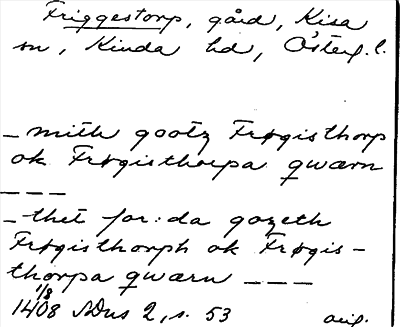 Friggestorp, gård, Kisa
sn, Kinda hd, Österg. l.
_ mith gootz Frøgisthorp
ok Frøgisthorpa qwærn
_ _ _
_ thet for:da gozeth
Frøgisthorph ok Frøgis-
thorpa qwærn _ _ _
1/8
1408 SDns 2, s. 53 orig.